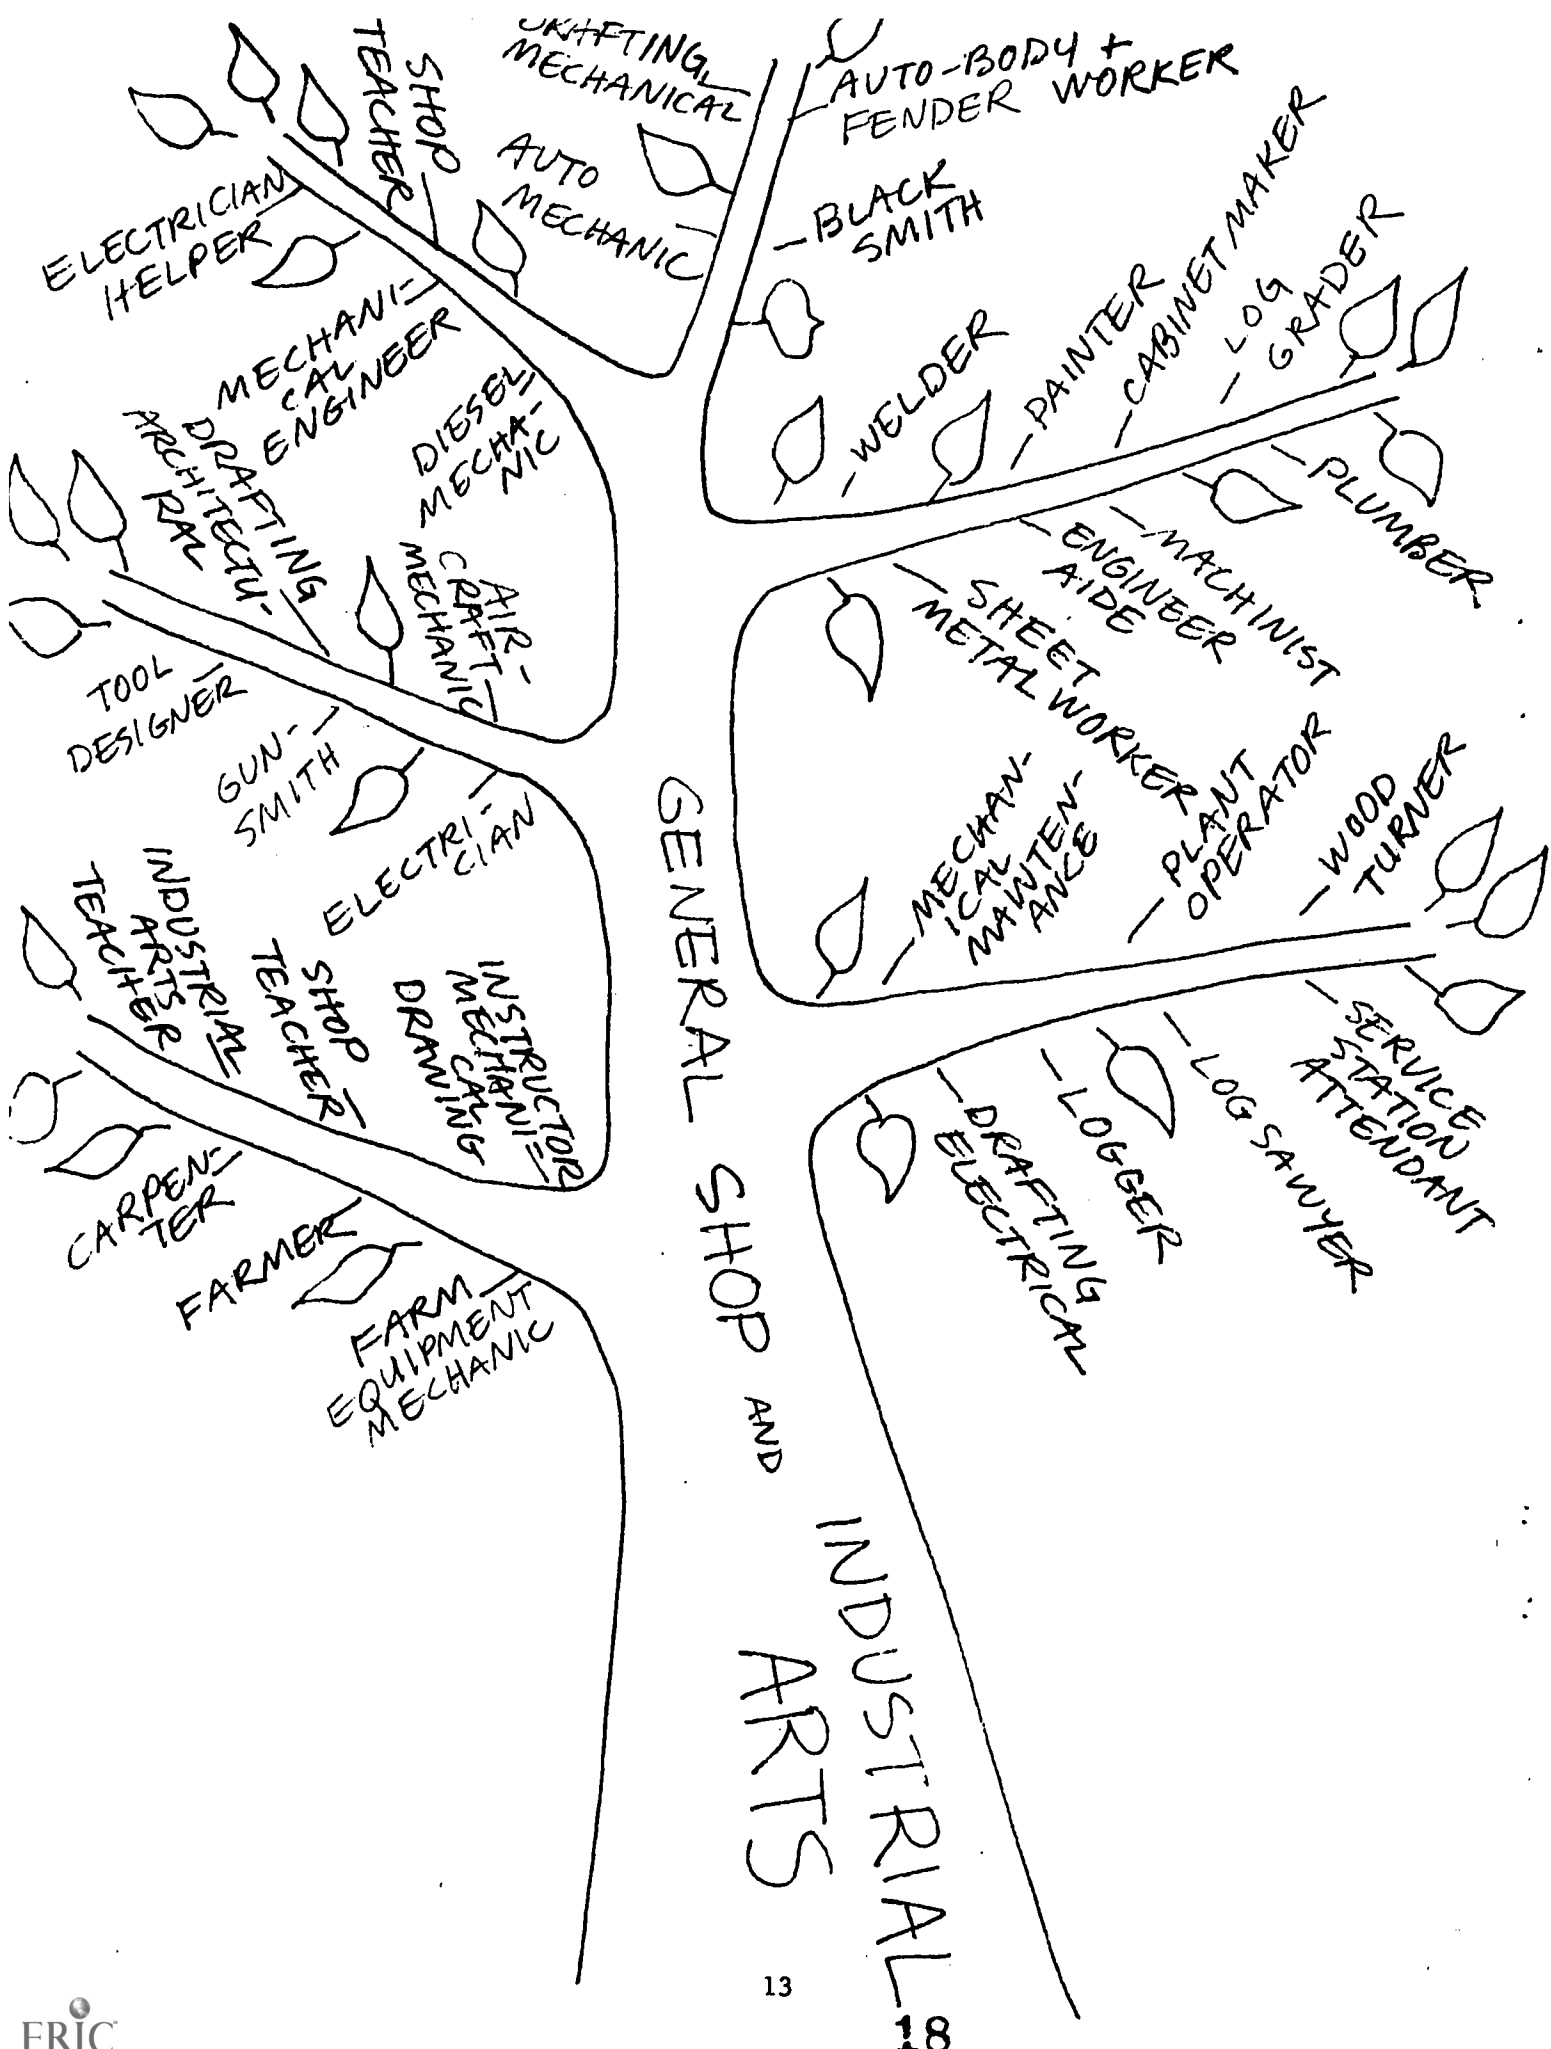 DRAFTING
MECHANICAL
AUTO-BODY +
FENDER WORKER
SHOP
TEACHER
AUTO
MECHANIC
BLACK
SMITH
ELECTRICIAN
HELPER
MECHANI-
CAL
ENGINEER
DIESEL
MECHA-
NIC
WELDER
PAINTER
CABINET MAKER
LOG
GRADER
PLUMBER
MACHINIST
ENGINEER
AIDE
SHEET
METAL WORKER
DRAFTING
ARCHITECTU-
RAL
AIR-
CRAFT
MECHANIC
TOOL
DESIGNER
GUN-
SMITH
ELECTRI-
CIAN
MECHAN-
ICAL
MAINTEN-
ANCE
PLANT
OPERATOR
WOOD
TURNER
INDUSTRIAL
ARTS
TEACHER
SHOP
TEACHER
INSTRUCTOR
MECHANI-
CAL
DRAWING
SERVICE
STATION
ATTENDANT
LOG SAWYER
LOGGER
DRAFTING
ELECTRICAL
CARPEN-
TER
FARMER
FARM
EQUIPMENT
MECHANIC
GENERAL SHOP AND INDUSTRIAL
ARTS
13
18
ERIC